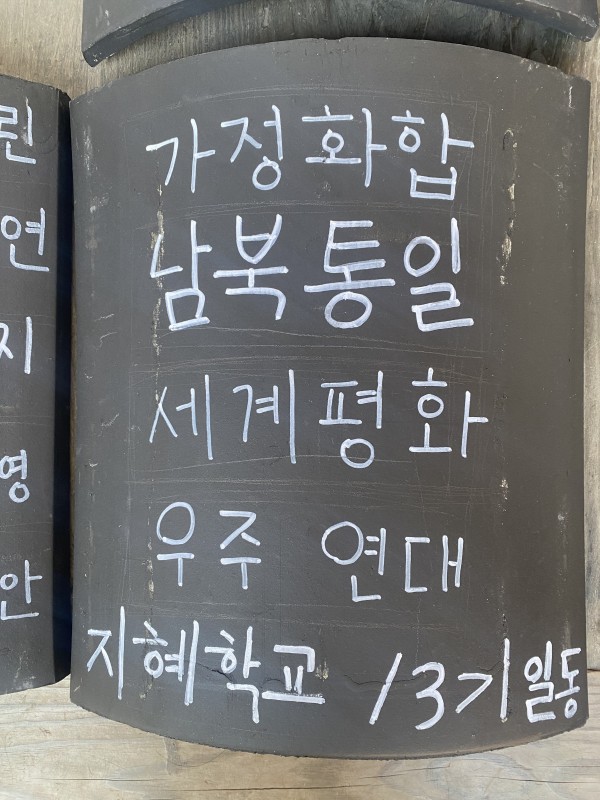 가정화합
남북통일
세계평화
우주 연대
지혜학교 13기 일동
린
연
지
영
안